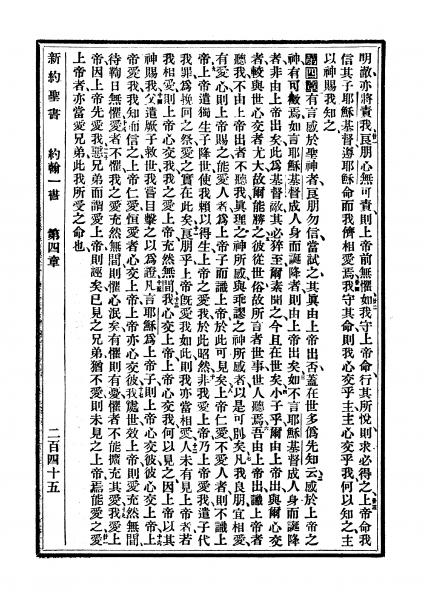 明澈亦將責我良朋心無可責則上帝前無懼如我守上帝命行其所悅則求必得之上帝命我
信其子耶穌基督遵耶穌命而我儕相愛焉我守其命則我心交乎主主心交乎我何以知之主
以神賜我知之
第四章有言感於聖神者良朋勿信當試之其眞由上帝出否蓋在世多僞先知云感於上帝之
神有可徵焉如言耶穌基督成人身而誕降者則由上帝出矣如不言耶穌基督成人身而誕降
者非由上帝出矣此爲基督敵其必猝至爾素聞之今且在世矣小子乎爾由上帝出與爾心交
者較與世心交者尤大故爾能勝之彼從世俗故所言者世事世人聽焉吾由上帝出識上帝者
聽我不由上帝出者不聽我眞理之神所感與乖謬之神所感者以是可別矣凡我良朋宜相愛
有愛心則上帝賜之能愛人者爲上帝子而識上帝於此可見矣上帝仁愛不愛人者則不識上
帝上帝遣獨生子降世使我賴以得生上帝之愛我於此昭然非我愛上帝乃上帝愛我遣子代
我罪爲挽回之祭愛之實在此矣良朋乎上帝旣愛我如此則我亦當相愛人未有見上帝者若
我相愛則上帝心交我我之愛上帝充然無間我心交上帝上帝心交我何以見之因上帝以其
神賜我父遣厥子救世我嘗目擊之以爲證凡言耶穌爲上帝子則上帝心交彼彼心交上帝上
帝愛我我知而信之上帝仁愛恆愛者心交上帝上帝亦心交彼我處世效上帝則愛充然無間
待鞫日無懼愛者不懼我之愛充然無間則懼心泯矣有懼則有憂懼者不能擴充其愛我愛上
帝因上帝先愛我惡兄弟而謂愛上帝則誑矣已見之兄弟猶不愛則未見之上帝焉能愛之愛
上帝者亦當愛兄弟此我所受之命也
新約聖書 約翰一書 第四章 二百四十五